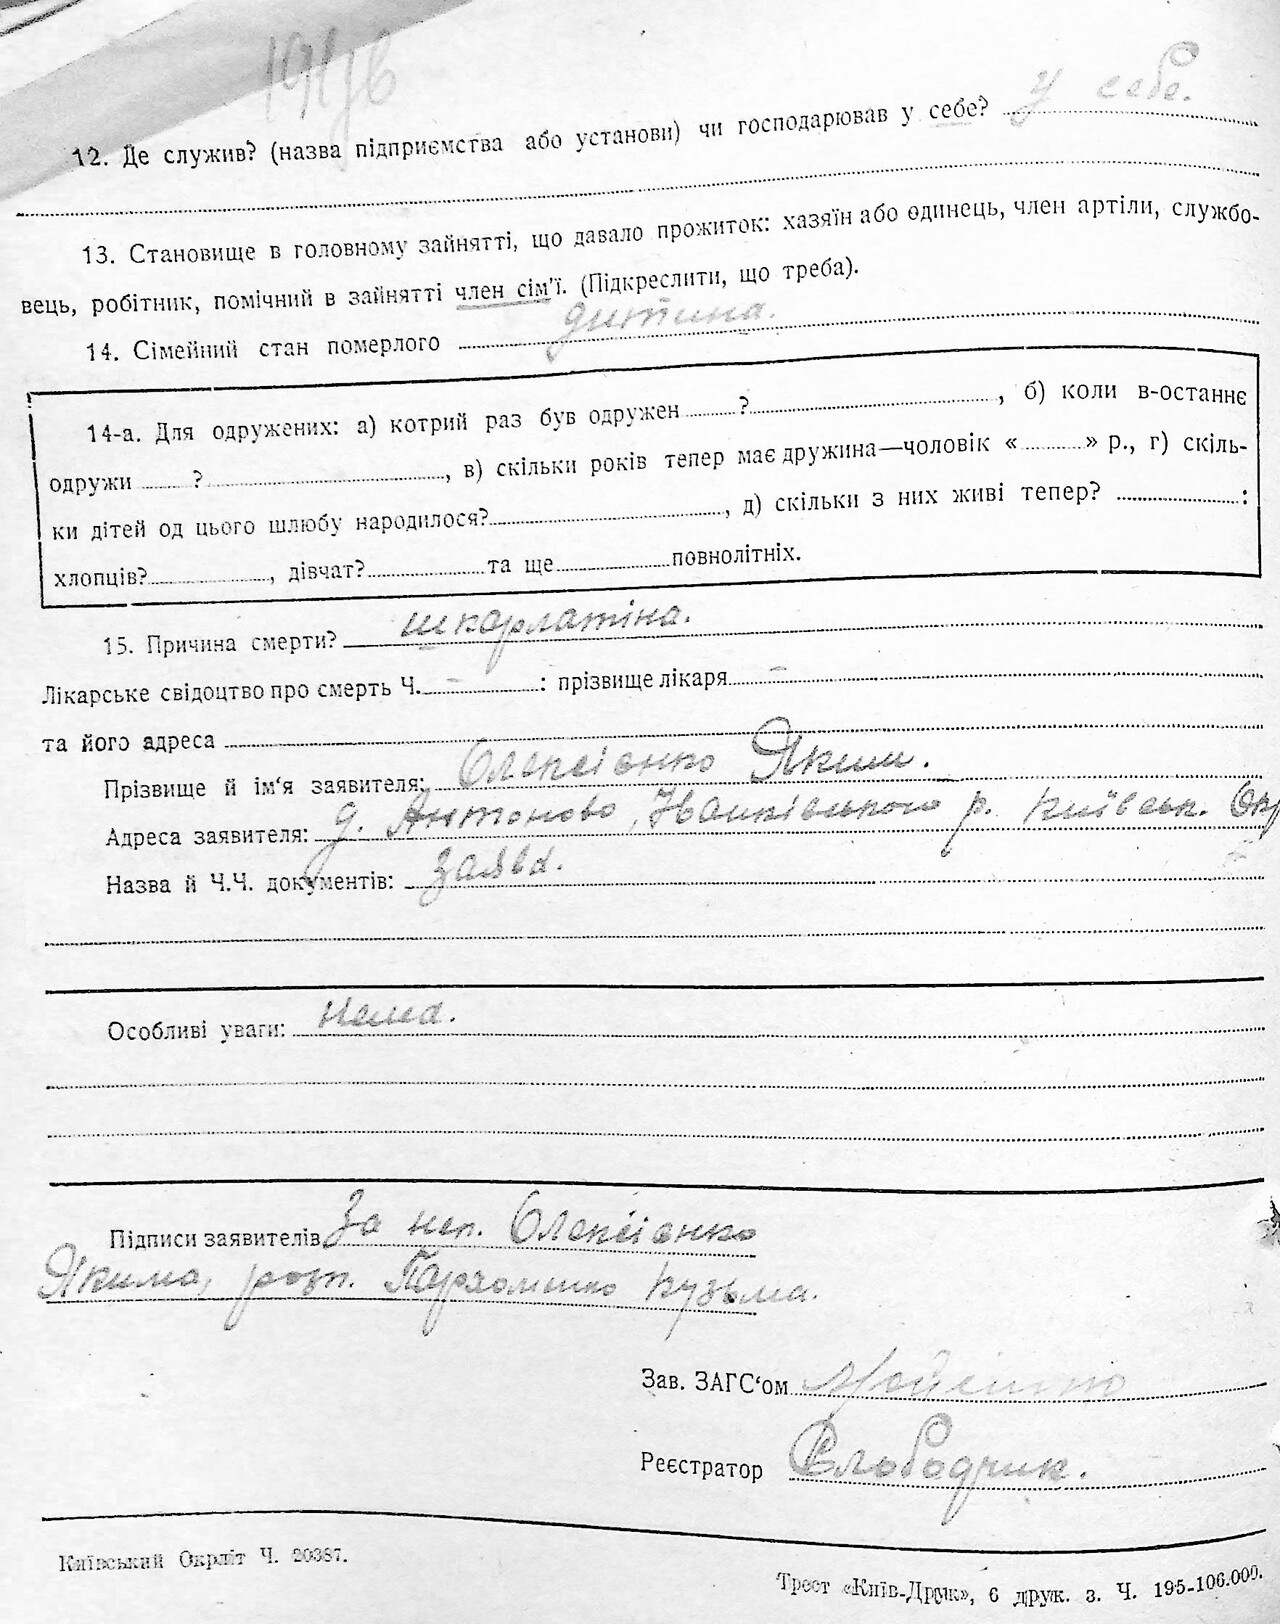 у себе.
12. Де служив? (назва підприємства або установи) чи господарював у себе?
13. Становище в головному зайнятті, що давало прожиток: хазяїн або одинець, член артіли, службо-
вець, робітник, помічний в зайнятті член сім'ї. (Підкреслити, що треба).
14. Сімейний стан померлого дитина.
14-а. Для одружених: а) котрий раз був одружен ? , б) коли в-останнє
одружи ? , в) скільки років тепер має дружина—чоловік « » р., г) скіль-
ки дітей од цього шлюбу народилося? , д) скільки з них живі тепер? :
хлопців? , дівчат? та ще повнолітніх.
15. Причина смерти? шкарлатіна.
Лікарське свідоцтво про смерть Ч. – : прізвище лікаря –
та його адреса
Прізвище й ім'я заявителя: Олексієнко Яким.
Адреса заявителя: д. Антоново, Іванківського р. Київськ. Окр
Назва й Ч.Ч. документів: заява.
Особливі уваги: нема.
Підписи заявителів За неп. Олексієнко
Якима, розп. Пархоменко Кузьма.
Зав. ЗАГС'ом
Реєстратор Слободчик.
Київський Окрліт Ч. 20387.
Трест «Київ-Друк», 6 друк. з. Ч. 195-106.000.